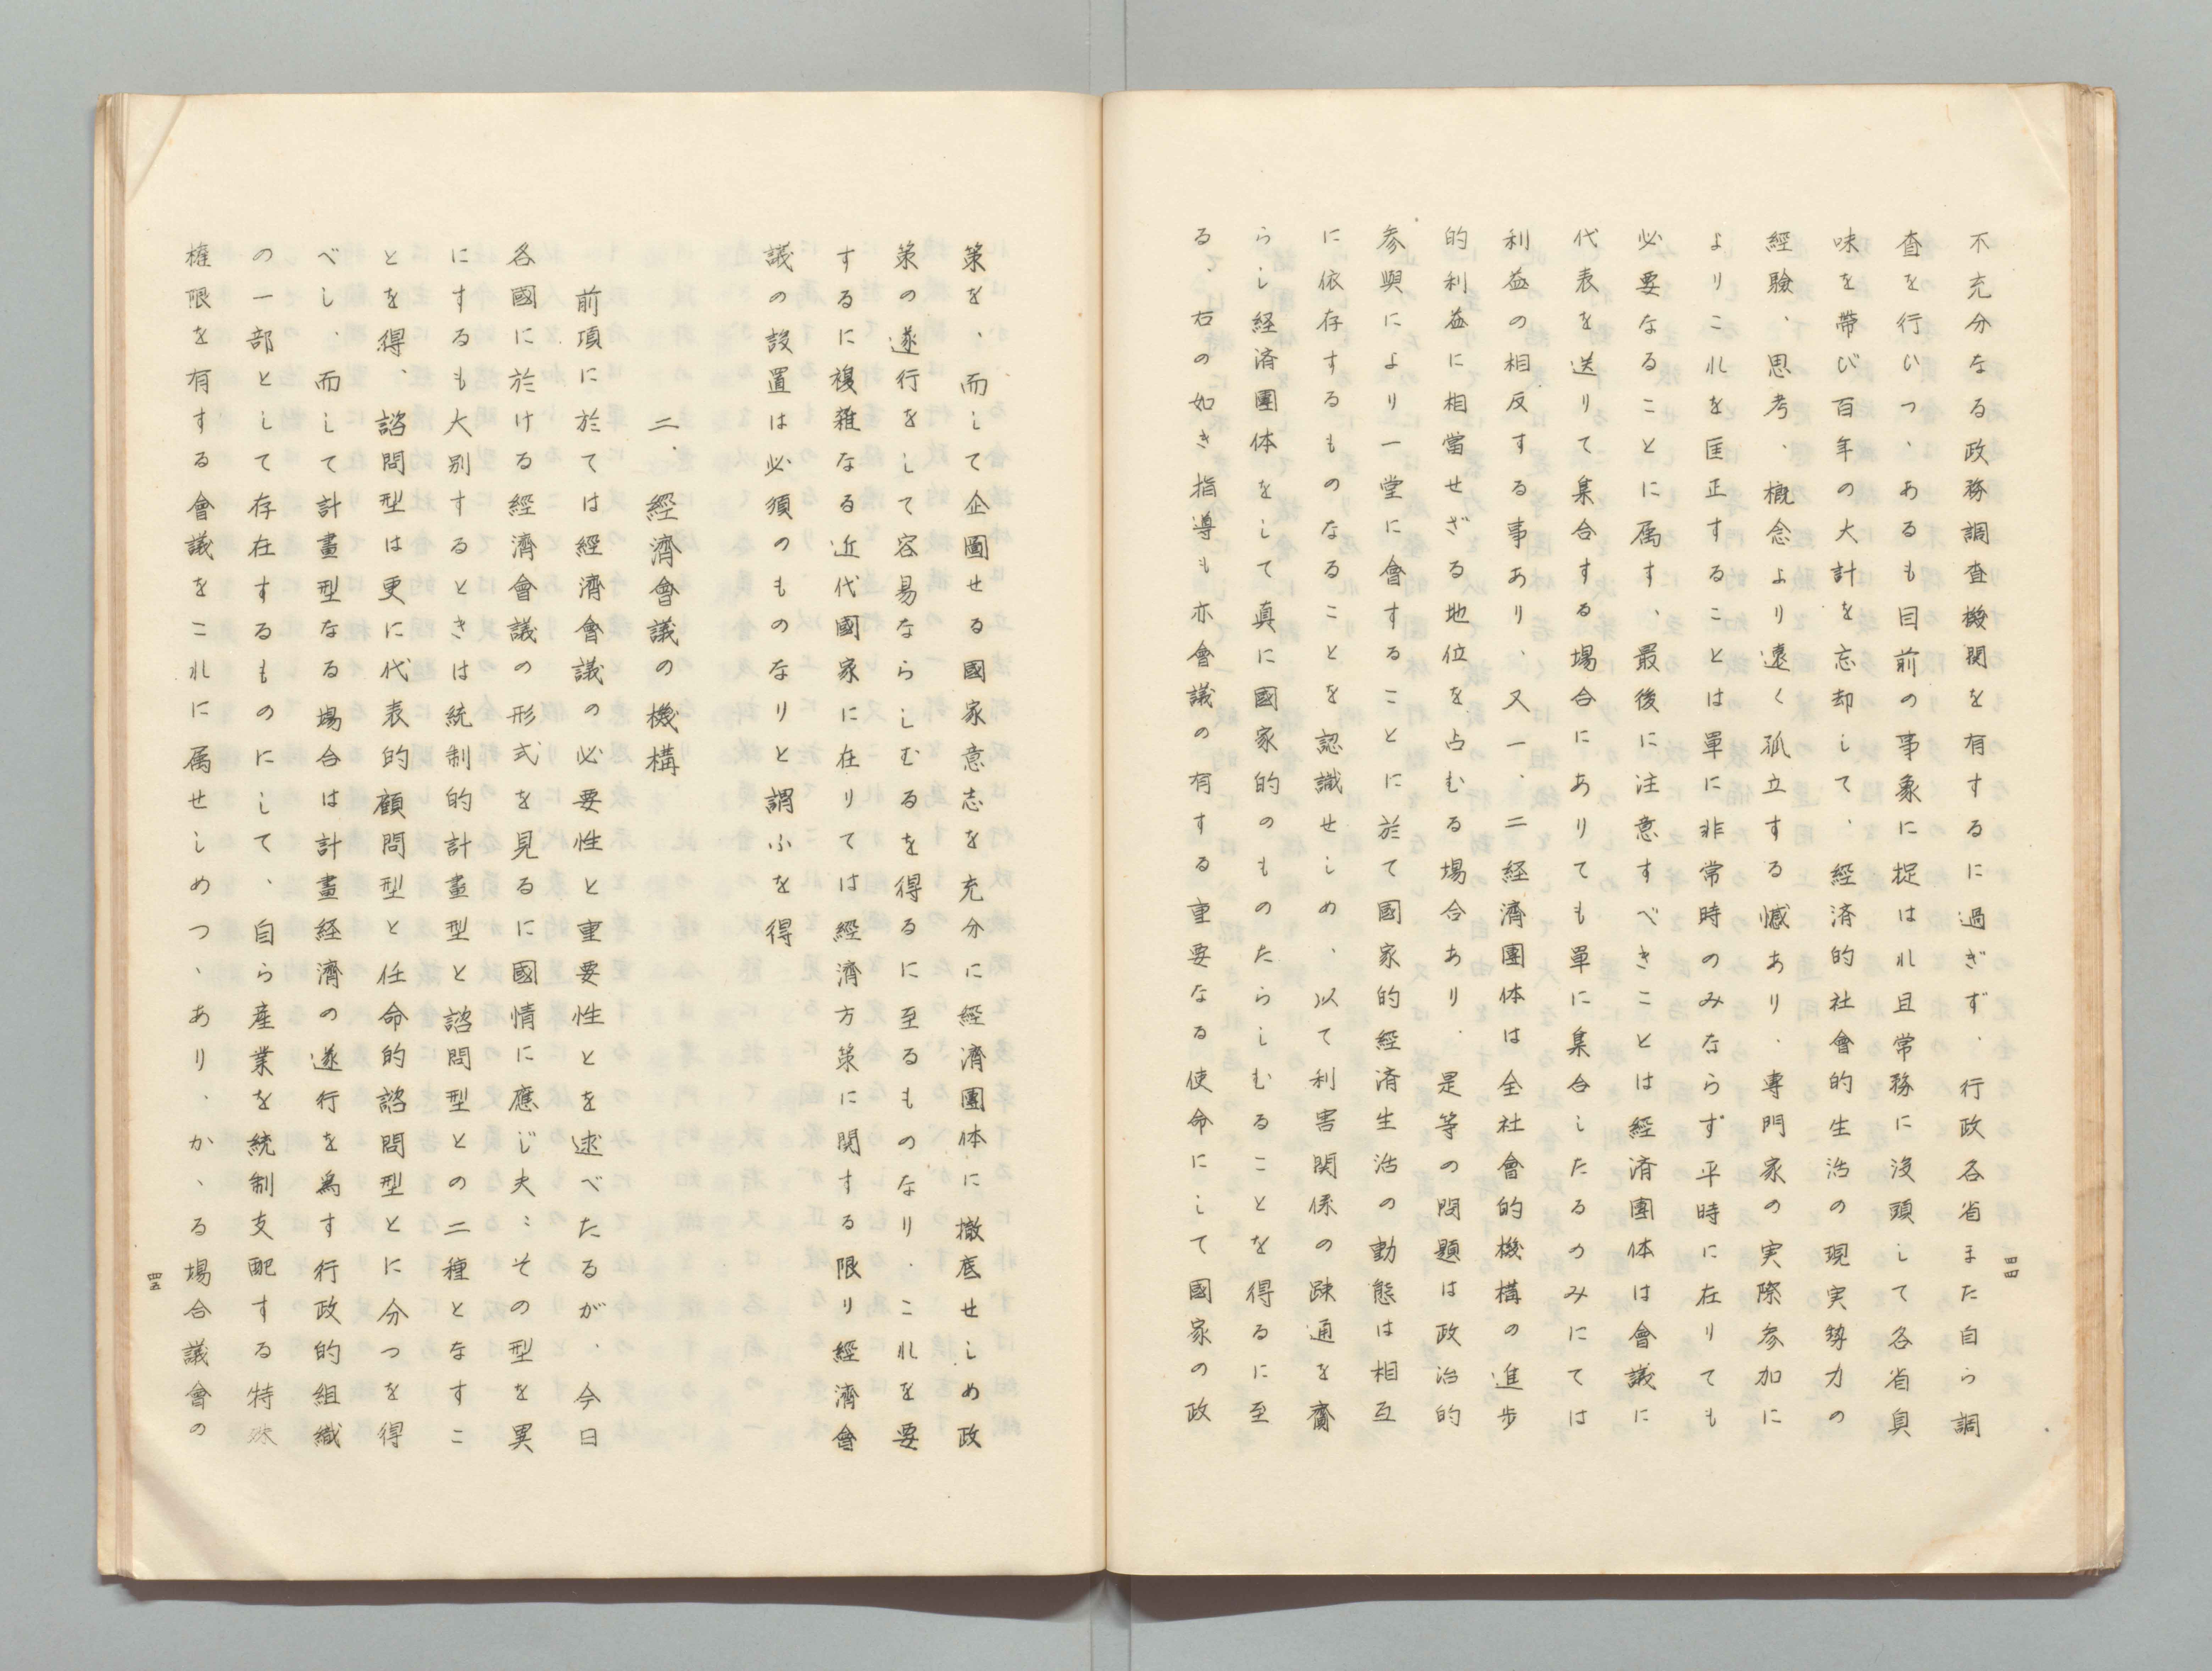 不充分なる政務調査機関を有するに過ぎず、行政各省また自ら調
査を行ひつゝあるも目前の事象に捉はれ且常務に没頭して各省員
味を帯び百年の大計を忘却して、経済的社會的生活の現実勢力の
經驗、思考、概念より遠く孤立する憾あり、専門家の実際参加に
よりこれを匡正することは單に非常時のみならず平時に在りても
必要なることに属す、最後に注意すべきことは經済團体は會議に
代表を送りて集合する場合にありても單に集合したるのみにては
利益の相反する事あり、又一、二経濟團体は全社會的機構の進歩
的利益に相當せざる地位を占むる場合あり、是等の問題は政治的
参與により一堂に會することに於て國家的經済生活の動態は相互
に依存するものなることを認識せしめ、以て利害関係の疎通を齎
らし経済團体をして真に國家的のものたらしむることを得るに至
る、右の如き指導も亦會議の有する重要なる使命にして國家の政
四四
策を、而して企圖せる國家意志を充分に経濟團体に撤底せしめ政
策の遂行をして容易ならしむるを得るに至るものなり、これを要
するに複雜なる近代國家に在りては經濟方策に関する限り經濟會
議の設置は必須のものなりと謂ふを得
二、經濟會議の機構
前項に於ては經濟會議の必要性と重要性とを逑べたるが、今日
各國に於ける經濟會議の形式を見るに國情に應じ夫〻その型を異
にするも大別するときは統制的計畫型と諮問型との二種となすこ
とを得、諮問型は更に代表的顧問型と任命的諮問型とに分つを得
べし、而して計畫型なる場合は計畫経濟の遂行を為す行政的組織
の一部として存在するものにして、自ら産業を統制支配する特殊
権限を有する會議をこれに属せしめつゝあり、かゝる場合議會の
四五